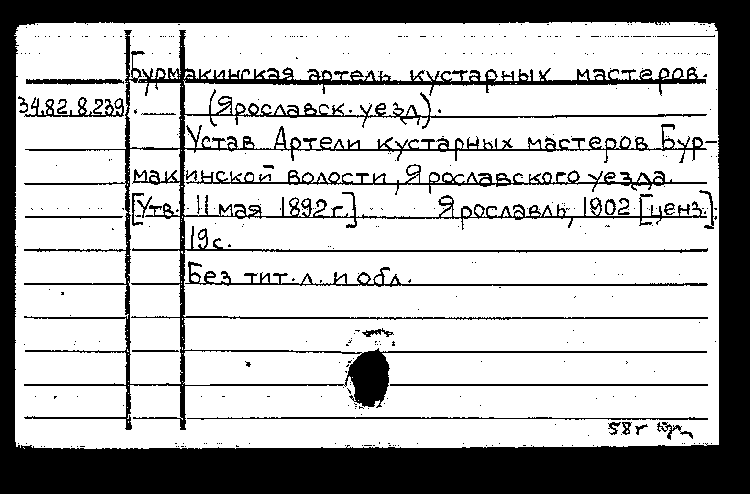 Бурмакинская артель кустарных мастеров.
34.82.8.239. (Ярославск. уезд).
Устав Артели кустарных мастеров Бур-
макинской волости, Ярославского уезда.
[Утв. 11 мая 1892 г.]. Ярославль, 1902 [ценз.].
19 с.
Без тит. л. и обл.
58 г